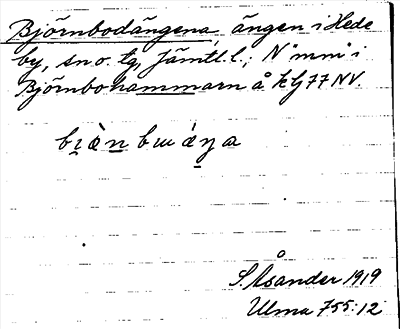 Björnbodängena, ängen i Hede
by, sn o. tg, Jämtl. l.; N "mm" i
Björnbohammarn å k bj 77 NV.
S. Åsander 1919
Ulma 755:12